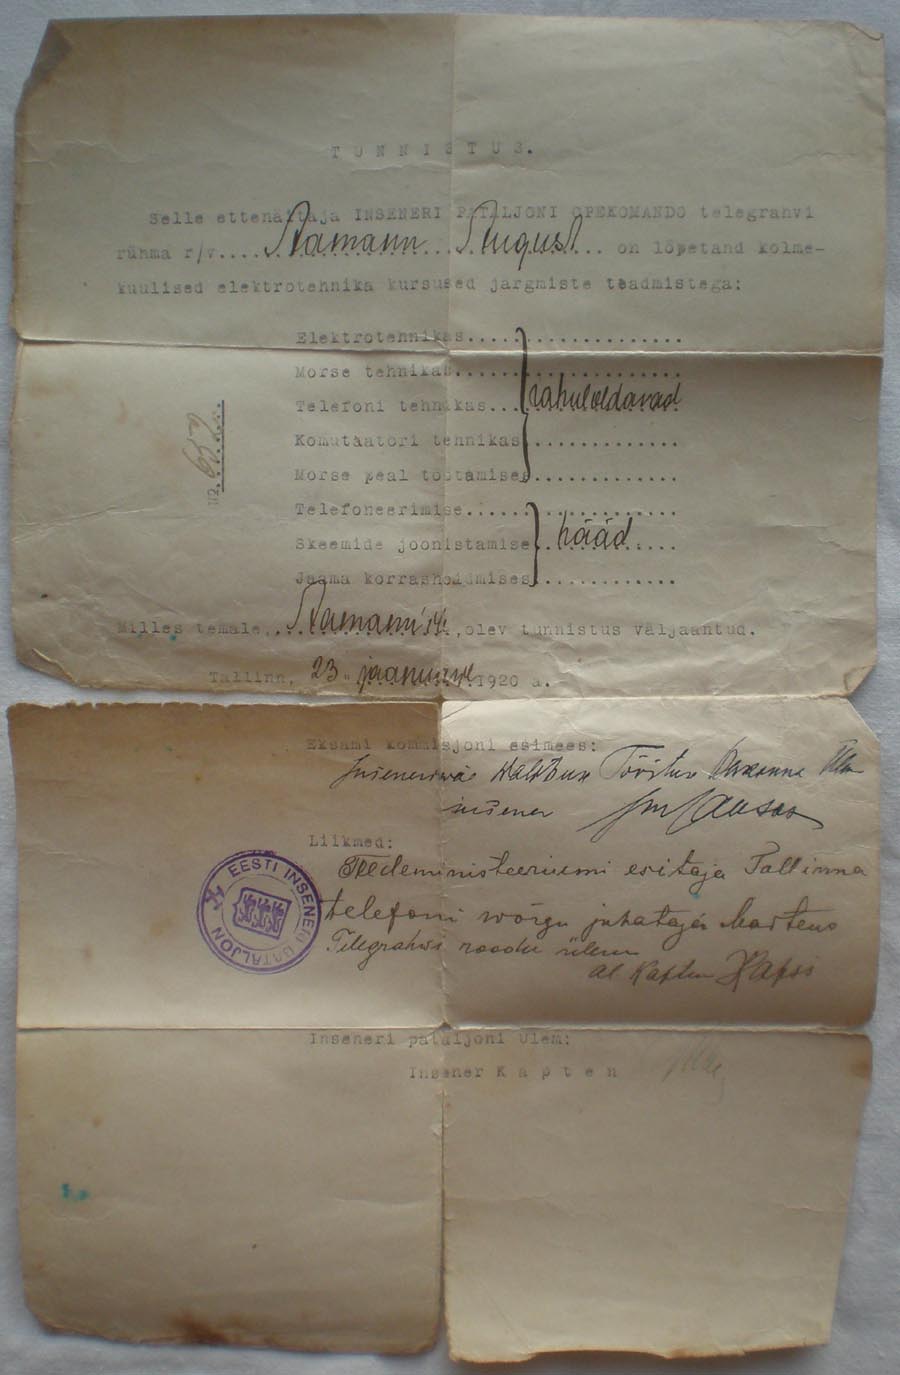 TUNNISTUS.
Selle ettenäitaja INSENERI PATALJONI OPEKOMANDO telegrahvi
rühma r/v.... Namann August ... on lõpetand kolme-
kuulised elektrotehnika kursused jargmiste teadmistega:
Elektrotehnikas....................
Morse tehnikas....................
Telefoni tehnikas... rahuloldavad
Komutaatori tehnikas..............
Morse peal töötamises.............
Telefoneerimise...................
Skeemide joonistamise... hääd ....
Jaama korrashoidmises.............
Milles temale,.. Namann'ile ,olev tunnistus väljaantud.
Tallinn, 23 " jaanuaril 1920 a.
Eksami kommisjoni esimees:
insener
Liikmed:
Teedeministeeriumi esitaja Tallinna
telefoni wõrgu juhataja Martens
Telegrahwi roodu ülem
al. Kapten
EESTI INSENERI PATALJON
Inseneri pataljoni Ülem:
Insener Kapten